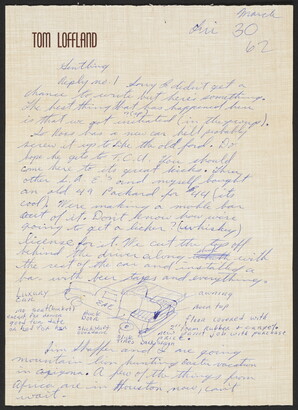 March
Fri 30
62
TOM LOFFLAND
Smithy
Reply no. 1 Sorry I didn't get a
chance to write but here's something.
The best thing that has happened here
is that we got initiated (in the group).
So Ross has a new car he'll probably
screw it up like the old ford. Do
hope he gets to T.C.U. You should
come here to its great kicks. Three
other and myself bought
an old 49 Packard for $44 (its
cool). Were making a mobile bar
out of it. Don't know how were
going to get a licker? (whiskey)
license for it. We cut the top off
behind the driver along with
the rest of the car and installed a
bar with beer taps and everything.
luxury
awning
floor covered with
foam rubber & carpet
paint job with purchase
Jim and I are going
mountain lion hunting easter vacation
in arizona. A few of the things from
Africa are in Houston now, can't
wait.